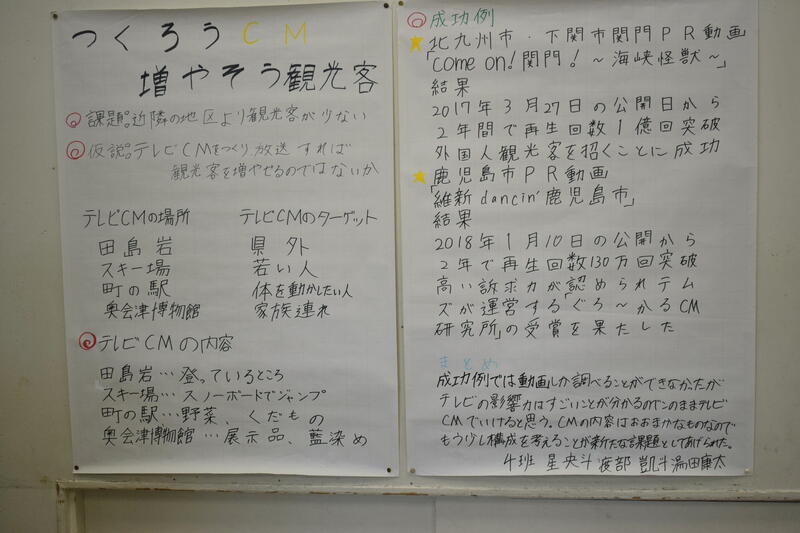 つくろうCM
増やそう観光客
課題。近隣の地区より観光客が少ない
仮説。テレビCMをつくり放送すれば
観光客を増やせるのではないか
テレビCMの場所
田島岩
スキー場
町の駅
奥会津博物館
テレビCMのターゲット
県外
若い人
体を動かしたい人
家族連れ
テレビCMの内容
田島岩…登っているところ
スキー場…スノーボードでジャンプ
町の駅…野菜、くだもの
奥会津博物館…展示品、藍染め
成功例
★北九州市・下関市関門PR動画
「come on!関門!～海峡怪獣～」
結果
2017年3月27日の公開日から
2年間で再生回数1億回突破
外国人観光客を招くことに成功
★鹿児島市PR動画
「維新dancin'鹿児島市」
結果
2018年1月10日の公開から
2年で再生回数130万回突破
高い訴求力が認められテム
ズが運営する「ぐろ～かるCM
研究所」の受賞を果たした
まとめ
成功例では動画しか調べることができなかったが
テレビの影響力はすごいことが分かるのでこのままテレビ
CMでいけると思う。CMの内容はおおまかなものなので
もう少し構成を考えることが新たな課題としてあげられた。
4班 星央斗 渡部凱斗 湯田康太